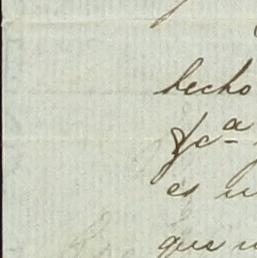 hecho
&c ª
es u
que u